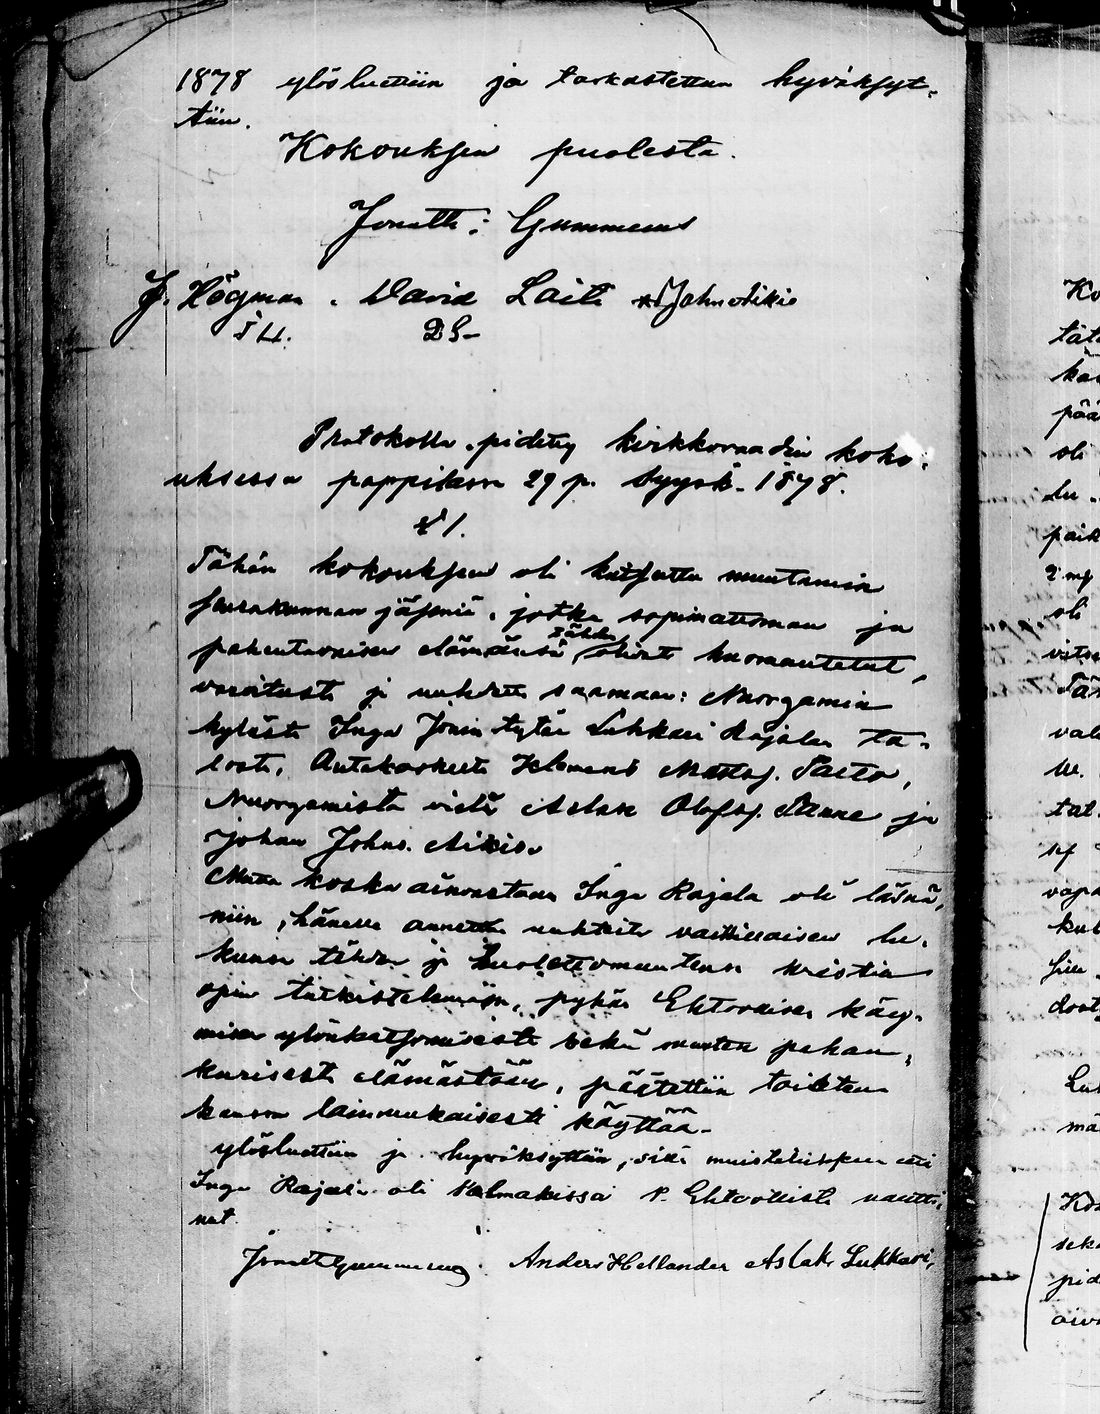 1878 ylösluettiin ja tarkastettua hyväksyt-
tiin.
Kokouksen puolesta.
Jonath: Gummerus
J. Högman. David Laiti Johan Aikio
Protokolla, pidetty kirkkoraadin koko-
uksessa pappilassa 29 p. Syysk. 1878.
§ 1.
Tähän kokouksen oli kutsuttu muutamia
seurakunnan jäseniä, jotka sopimattoman ja
pahentavaisen elämänsä tähden olivat kuomautetut,
varoitusta ja nuhdetta saamaan: Nuorgamin
kylästä Inga Jounin tytär Lukkari Rajalan ta-
losta, Outakoskelta Klemens Mattsf. Paito,
Nuorgamista vielä Aslak Olofsf. Länne ja
Johan Johns. Aikio.
Mutta koska ainoastaan Inga Rajala oli läsnä,
niin, hänelle annettu nuhteita vaillinaisen lu-
kunsa tähden ja huolettomuutensa kristin
opin tutkistelemisen, pyhän Ehtoollisen käy-
misen ylönkatsomisesta sekä muuten pahan-
kurisesta elämästään, päätettiin toisten
kanssa lainmukaisesti käyttää.
ylösluettiin ja hyväksyttiin, sillä muistutuksen että
Inga Rajala oli Polmakissa P. Ehtoollista nautti-
nut.
Jonath Gummerus. Anders Hellander Aslak Lukkari,
Ko
tät
kä
pää
oli
lu
paik
oli
vals
tal
vapa
Luk
mä
Kos
sekä
pid
oiv